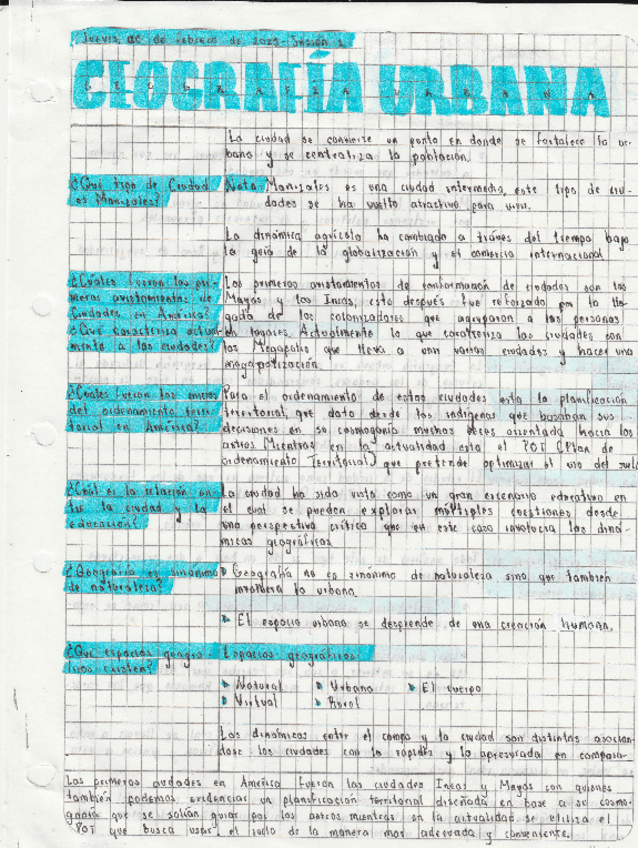 Jueves, de Febrero de 2025 - Sesión 1
GEOGRAFÍA URBANA
La ciudad se convierte un punto en donde se fortalece lo ur-
bano y se centraliza la población.
¿Qué tipo de Ciudad
es Manizales?
Nota: Manizales es una ciudad intermedia, este tipo de ciu-
dades se ha vuelto atractivo para vivir.
La dinámica agrícola ha cambiado a tráves del tiempo bajo
la guia de la globalización y el comercio internacional
¿Cuáles fueron los pri-
meros avistamientos de
Ciudades en América?
¿Qué caracteriza actual-
mente a las ciudades?
Los primeros avistamientos de conformación de ciudades son los
Mayas y los Incas, esto después fue reforzado por la lle-
gada de los colonizadores que agruparon a las personas
en lugares. Actualmente lo que caracteriza las ciudades son
las Megapolis que lleva a unir varias ciudades y hacer una
megapolización.
¿Cuales fueron los inicios
del ordenamiento terri-
torial en América?
Para el ordenamiento de estas ciudades esta la planificación
territorial, que data desde los indígenas que basaban sus
decisiones en su cosmogonía muchas veces orientada hacia los
astros. Mientras en la actualidad esta el POT (Plan de
ordenamiento Territorial) que pretende optimizar el uso del suelo
¿Cuál es la relación en-
tre la ciudad y la
educación?
La ciudad ha sido vista como un gran escenario educativo en
el cual se pueden explorar múltiples cuestiones desde
una perspectiva crítica que en este caso involucra las diná-
micas geográficas
¿Geografía es sinónimo
de naturaleza?
Geografía no es sinónimo de naturaleza sino que también
involucra lo urbano.
El espacio urbano se desprende de una creación humana.
¿Qué espacios geográ-
ficos existen?
Espacios geográficos:
Natural Urbano El cuerpo
Virtual Rural
Las dinámicas entre el campo y la ciudad son distintas asocian-
dose las ciudades con la rapidéz y lo apresurado en compara-
Las primeras ciudades en América fueron las ciudades Incas y Mayas con quienes
también podemos evidenciar un planificación territorial diseñada en base a su cosmo-
gonía que se solían guiar por los astros mientras en la actualidad se utiliza el
POT que busca usar el suelo de la manera mas adecuada y conveniente.